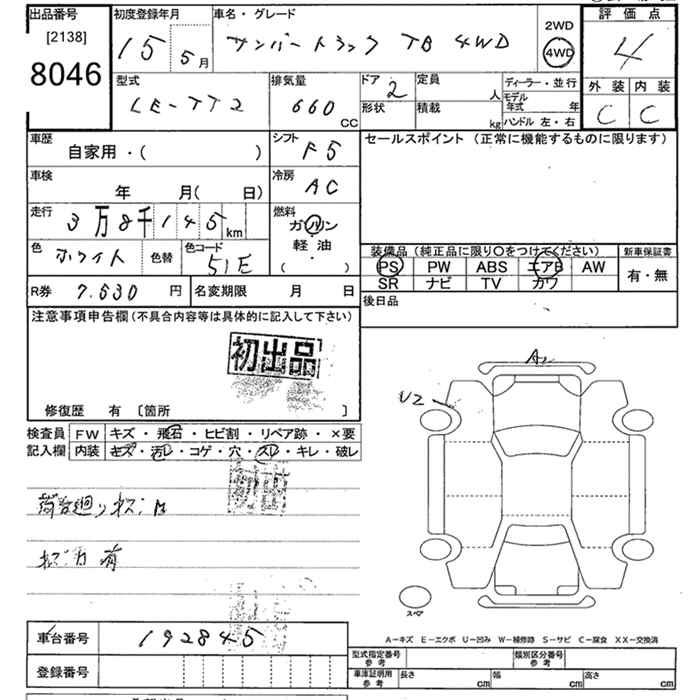 出品番号 初度登録年月 車名・グレード 2WD 評価点
[2138] 15 5月 サンバートラック TB 4WD 4WD 4
8046
型式 排気量 ドア 定員 ディーラー・並行 外装 内装
LE-TT2 660 CC 2 人 モデル年式 年 C C
形状 積載 kg ハンドル 左・右
車歴 シフト セールスポイント (正常に機能するものに限ります)
自家用・( ) F5
車検 冷房
年 月( 日) AC
走行 燃料
3万8千145 km ガソリン
軽油
( ・ )
色 ホワイト 色替 色コード 51E
装備品(純正品に限り○をつけてください) 新車保証書
PS PW ABS エアB AW 有・無
SR ナビ TV カワ
R券 7.530 円 名変期限 月 日 後日品
注意事項申告欄(不具合内容等は具体的に記入して下さい)
初出品
修復歴 有 [箇所 ]
A2
U2
検査員 FW キズ・飛石・ヒビ割・リペア跡・×要
記入欄 内装 キズ・汚レ・コゲ・穴・スレ・キレ・破レ
初出品
荷台廻り
有
スペア
A-キズ E-エクボ U-凹み W-補修跡 S-サビ C-腐食 XX-交換済
車台番号 192845
型式指定番号 参考 類別区分番号 参考
登録番号
車庫証明用 参考 長さ cm 幅 cm 高さ cm